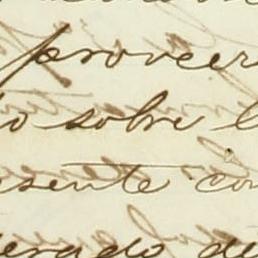 proveer
o sobre l
sente con
erado de